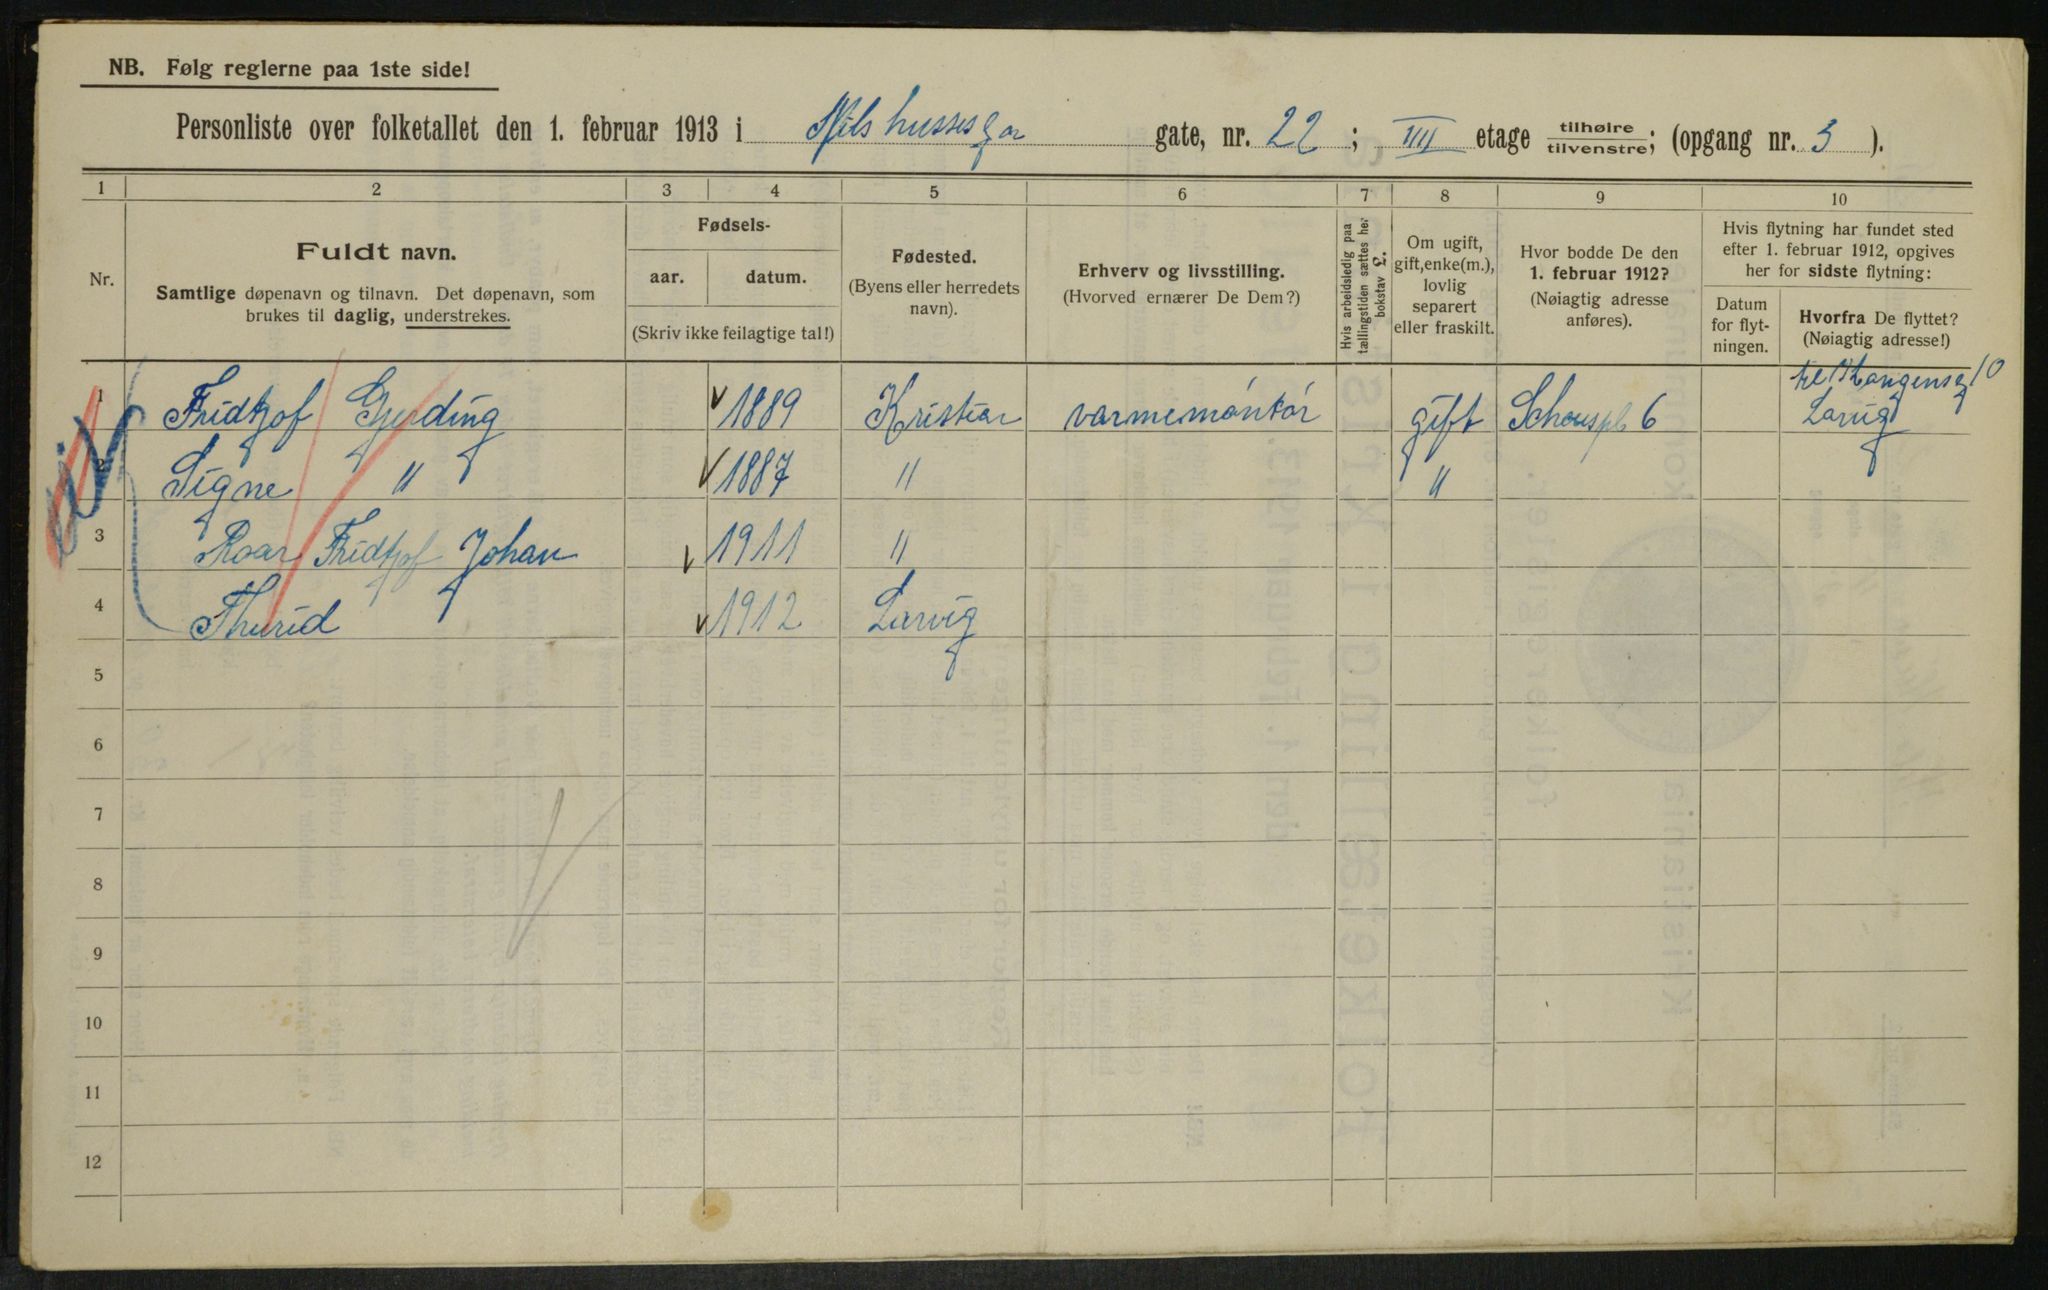 NB. Følg reglerne paa 1ste side!
Personliste over folketallet den 1. februar 1913 i Nils hussesga gate, nr. 22; IIII etage tilhøire/tilvenstre; (opgang nr. 3 ).
1 2 3 4 5 6 7 8 9 10
Nr.
Fuldt navn.
Samtlige døpenavn og tilnavn. Det døpenavn, som
brukes til daglig, understrekes.
Fødsels-
aar. datum.
(Skriv ikke feilagtige tal!)
Fødested.
(Byens eller herredets
navn).
Erhverv og livsstilling.
(Hvorved ernærer De Dem?)
Hvis arbeidsledig paa
tællingstiden sættes her
bokstav L.
Om ugift,
gift, enke(m.),
lovlig
separert
eller fraskilt.
Hvor bodde De den
1. februar 1912?
(Nøiagtig adresse
anføres).
Hvis flytning har fundet sted
efter 1. februar 1912, opgives
her for sidste flytning:
Datum
for flyt-
ningen.
Hvorfra De flyttet?
(Nøiagtig adresse!)
1 Fridtjof Gjerding 1889 Kristian varmemontør gift Schouspl 6 Larvig
2 Signe " 1887 " "
3 Roar Fridtjof Johan 1911 "
4 Thurid 1912 Larvig
5
6
7
8
9
10
11
12